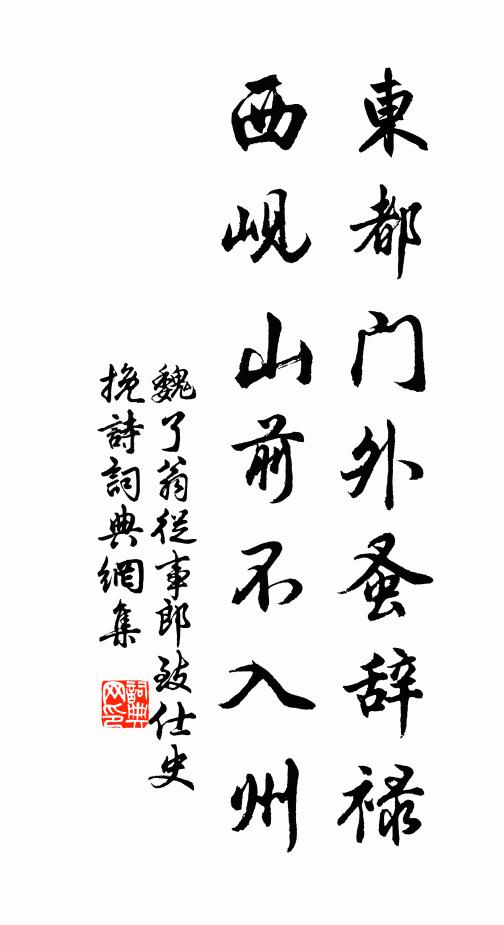 東都门外蚤辞禄
西峴山前不入州
魏了翁從事郎致仕史
挽詩詞典網集
詞典
网印